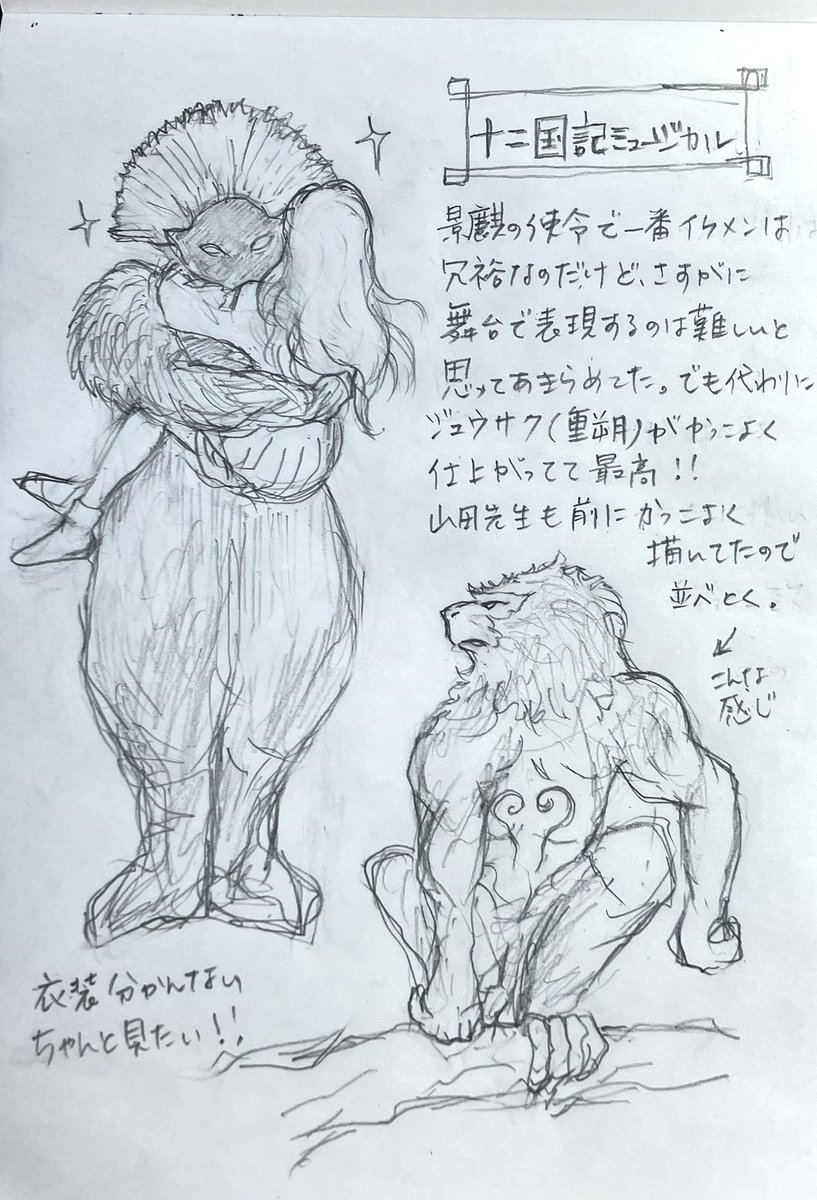 十二国記ミュージカル
景麒の使令で一番イケメンは
冗祐なのだけど、さすがに
舞台で表現するのは難しいと
思ってあきらめてた。でも代わりに
ジュウサク(重朔)がかっこよく
仕上がってて最高!!
山田先生も前にかっこよく
描いてたので
並べとく。
こんな
感じ
衣装分かんない
ちゃんと見たい!!